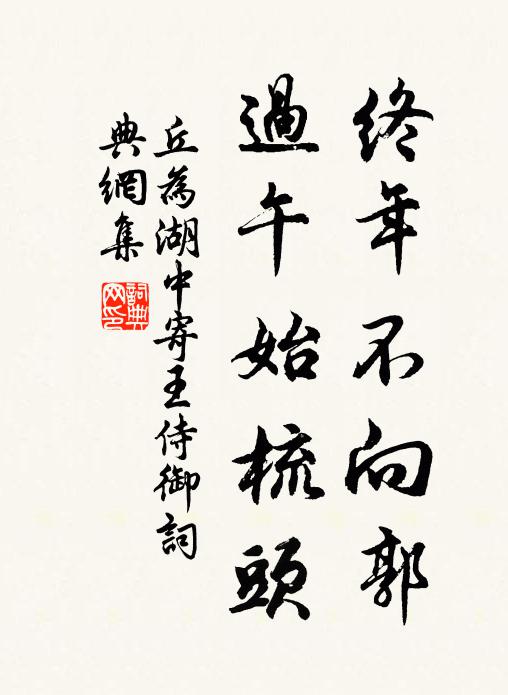 終年不向郭
過午始梳頭
丘為湖中寄王侍御詞
典網集
詞典
网印